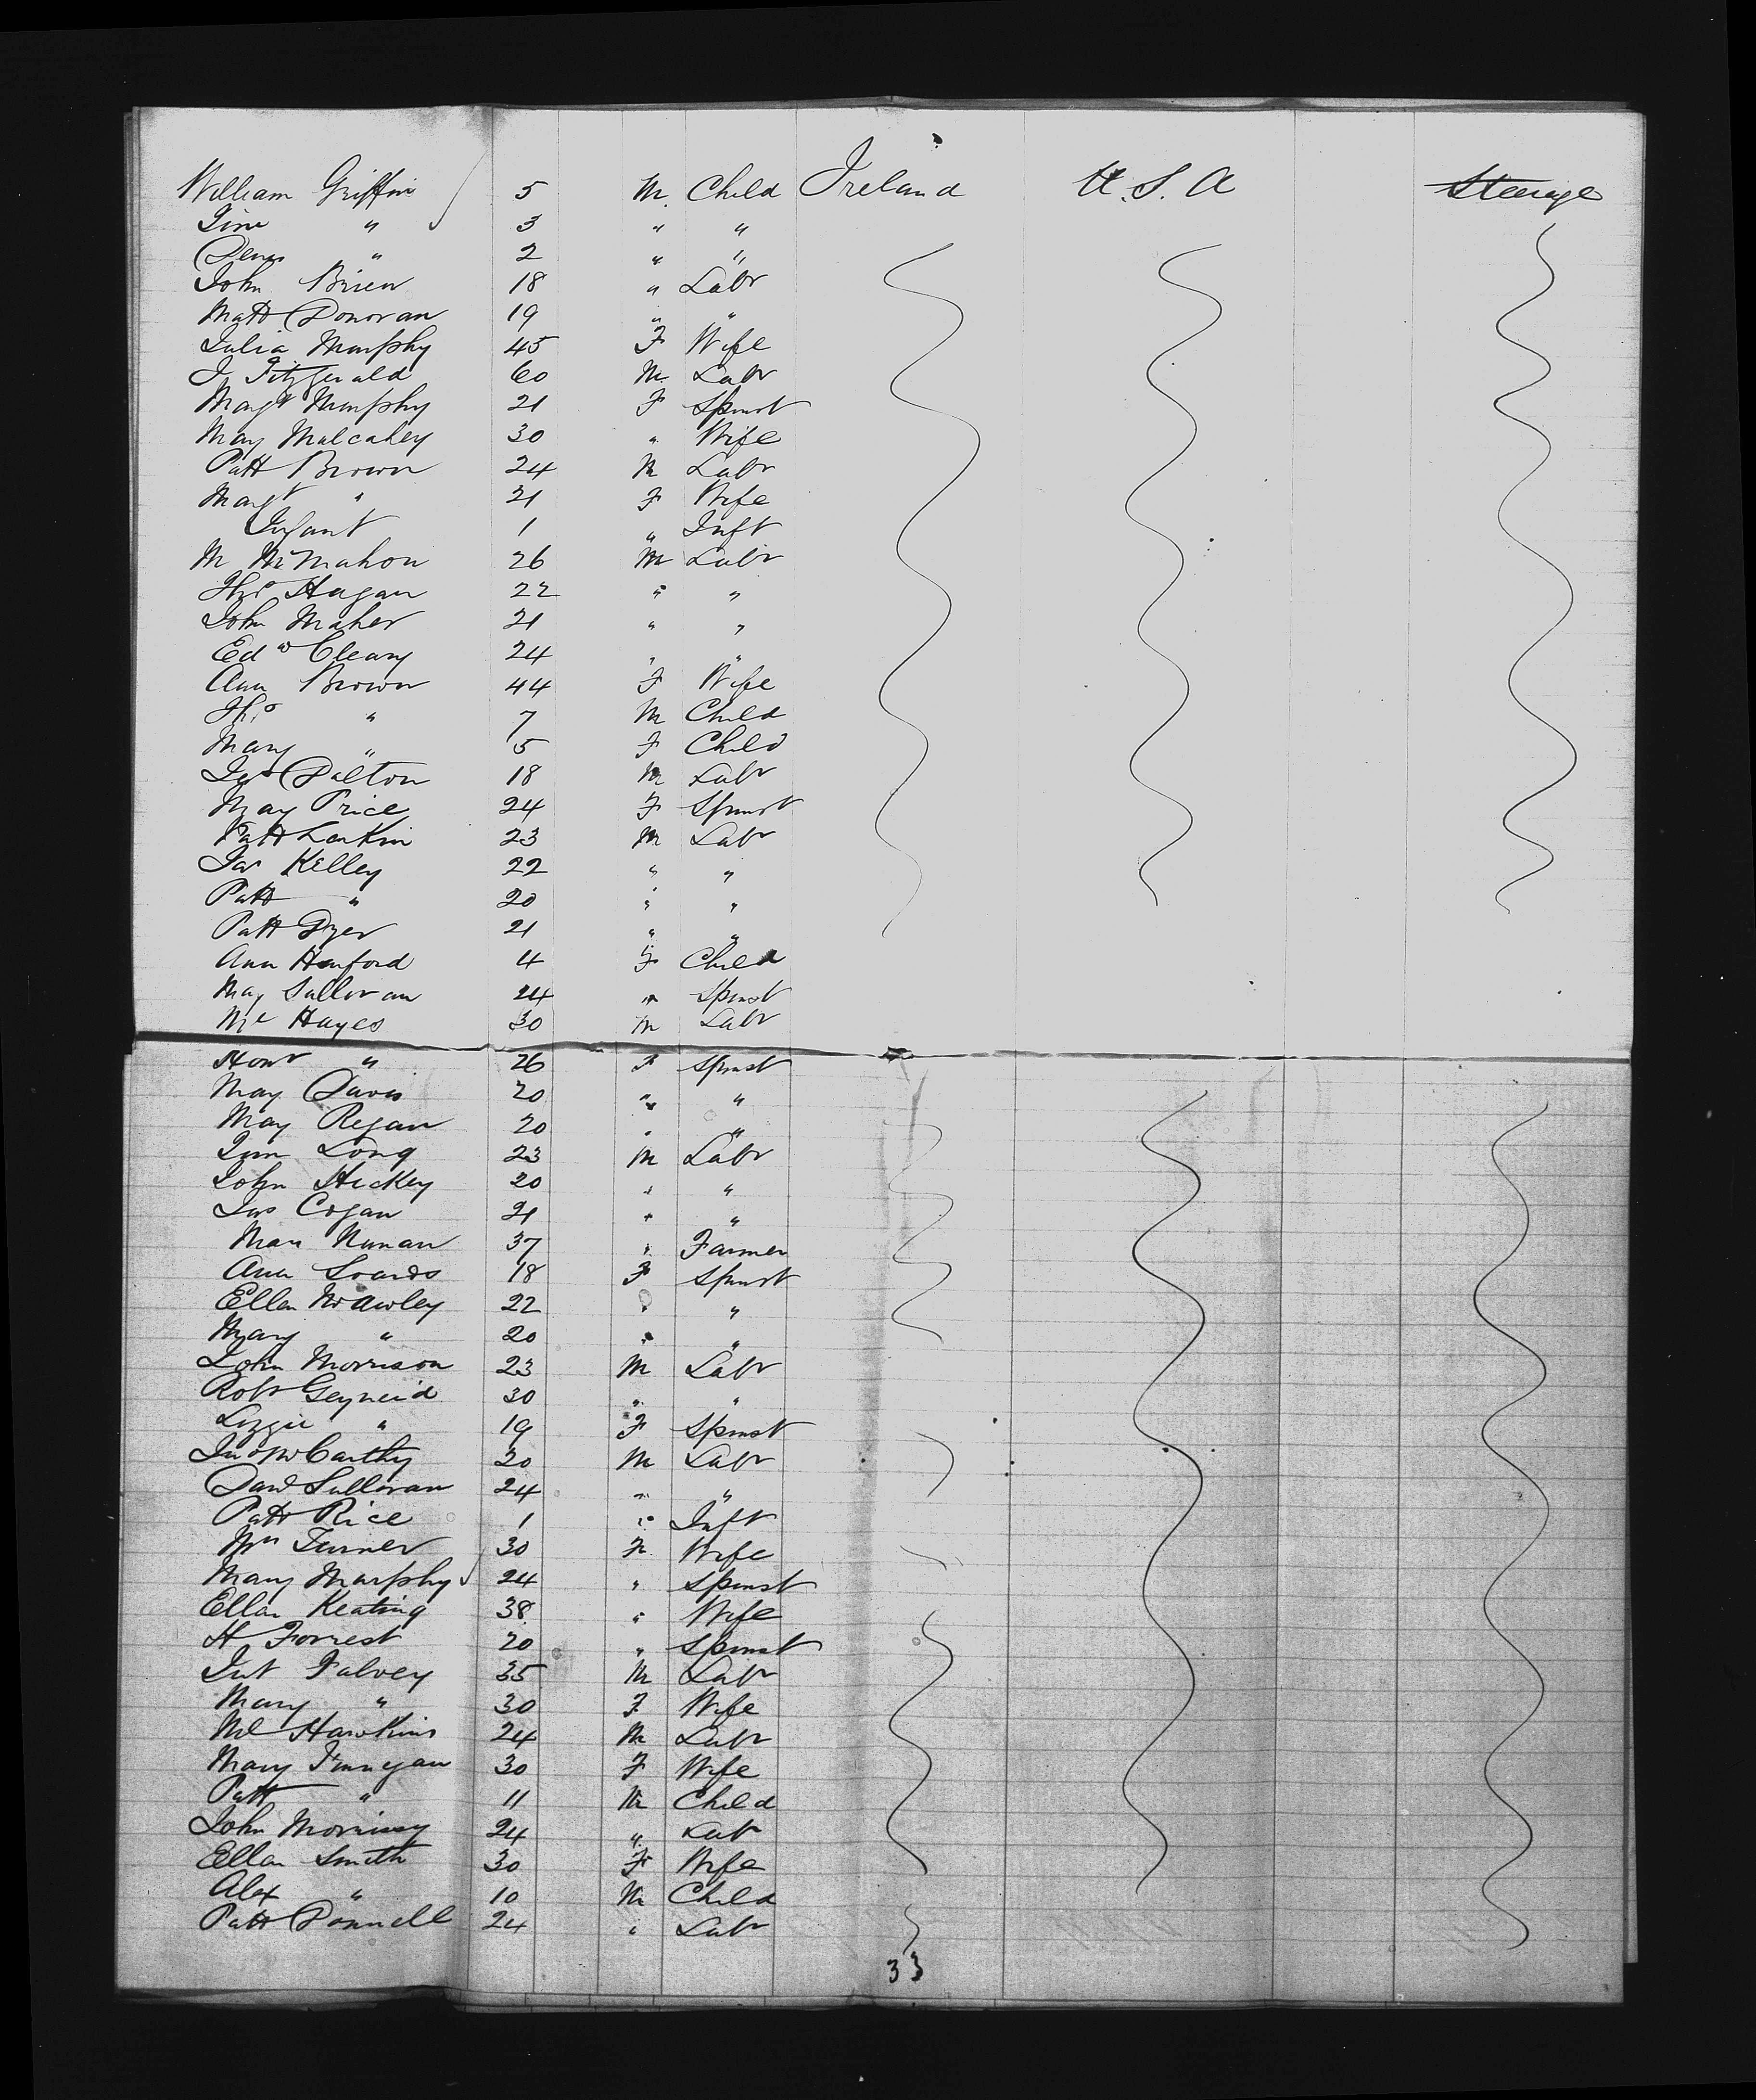 William Griffin 5 M. Child Ireland U.S.A Steerage
Tim " 3 " "
Denis " 2 " "
John Brien 18 " Labr
Matt Donovan 19 " "
Julia Murphy 45 F Wife
J Fitzgerald 60 M Labr
Margt Murphy 21 F Spinst
Mary Mulcahey 30 " Wife
Patt Brown 24 M Labr
Margt " 21 F Wife
Infant 1 " Inft
M McMahon 26 M Labr
Thos Hagan 22 " "
John Maher 21 " "
Edwd Cleary 24 " "
Ann Brown 44 F Wife
Thos " 7 M Child
Mary " 5 F Child
Jas Dalton 18 M Labr
May Price 24 F Spinst
Patt Larkin 23 M Labr
Jas Kelley 22 " "
Patt " 20 " "
Patt Dyer 21 " "
Ann Hanford 4 F Child
May Sullivan 24 " Spinst
Ml Hayes 30 M Labr
Honr " 26 F Spinst
May Davis 20 " "
May Regan 20 " "
Tim Long 23 M Labr
John Hickey 20 " "
Jas Cogan 21 " "
Nunan 37 " Farmer
Ann 18 F Spinst
Ellen McAwley 22 " "
Mary " 20 " "
John Morrison 23 M Labr
Robt 30 " "
Lizzie " 19 F Spinst
Jno McCarthy 20 M Labr
Danl Sullivan 24 " "
Patt Rice 1 " Inft
Mrs Turner 30 F Wife
Mary Murphy 24 " Spinst
Ellen Keating 38 " Wife
H Forrest 20 " Spinst
Falvey 35 M Labr
Mary " 30 F Wife
Ml Hawkins 24 M Labr
Mary Finnegan 30 F Wife
Patt " 11 M Child
John Morrissy 24 " Labr
Ellen Smith 30 F Wife
Alex " 10 M Child
Patt Donnell 24 " Labr
33